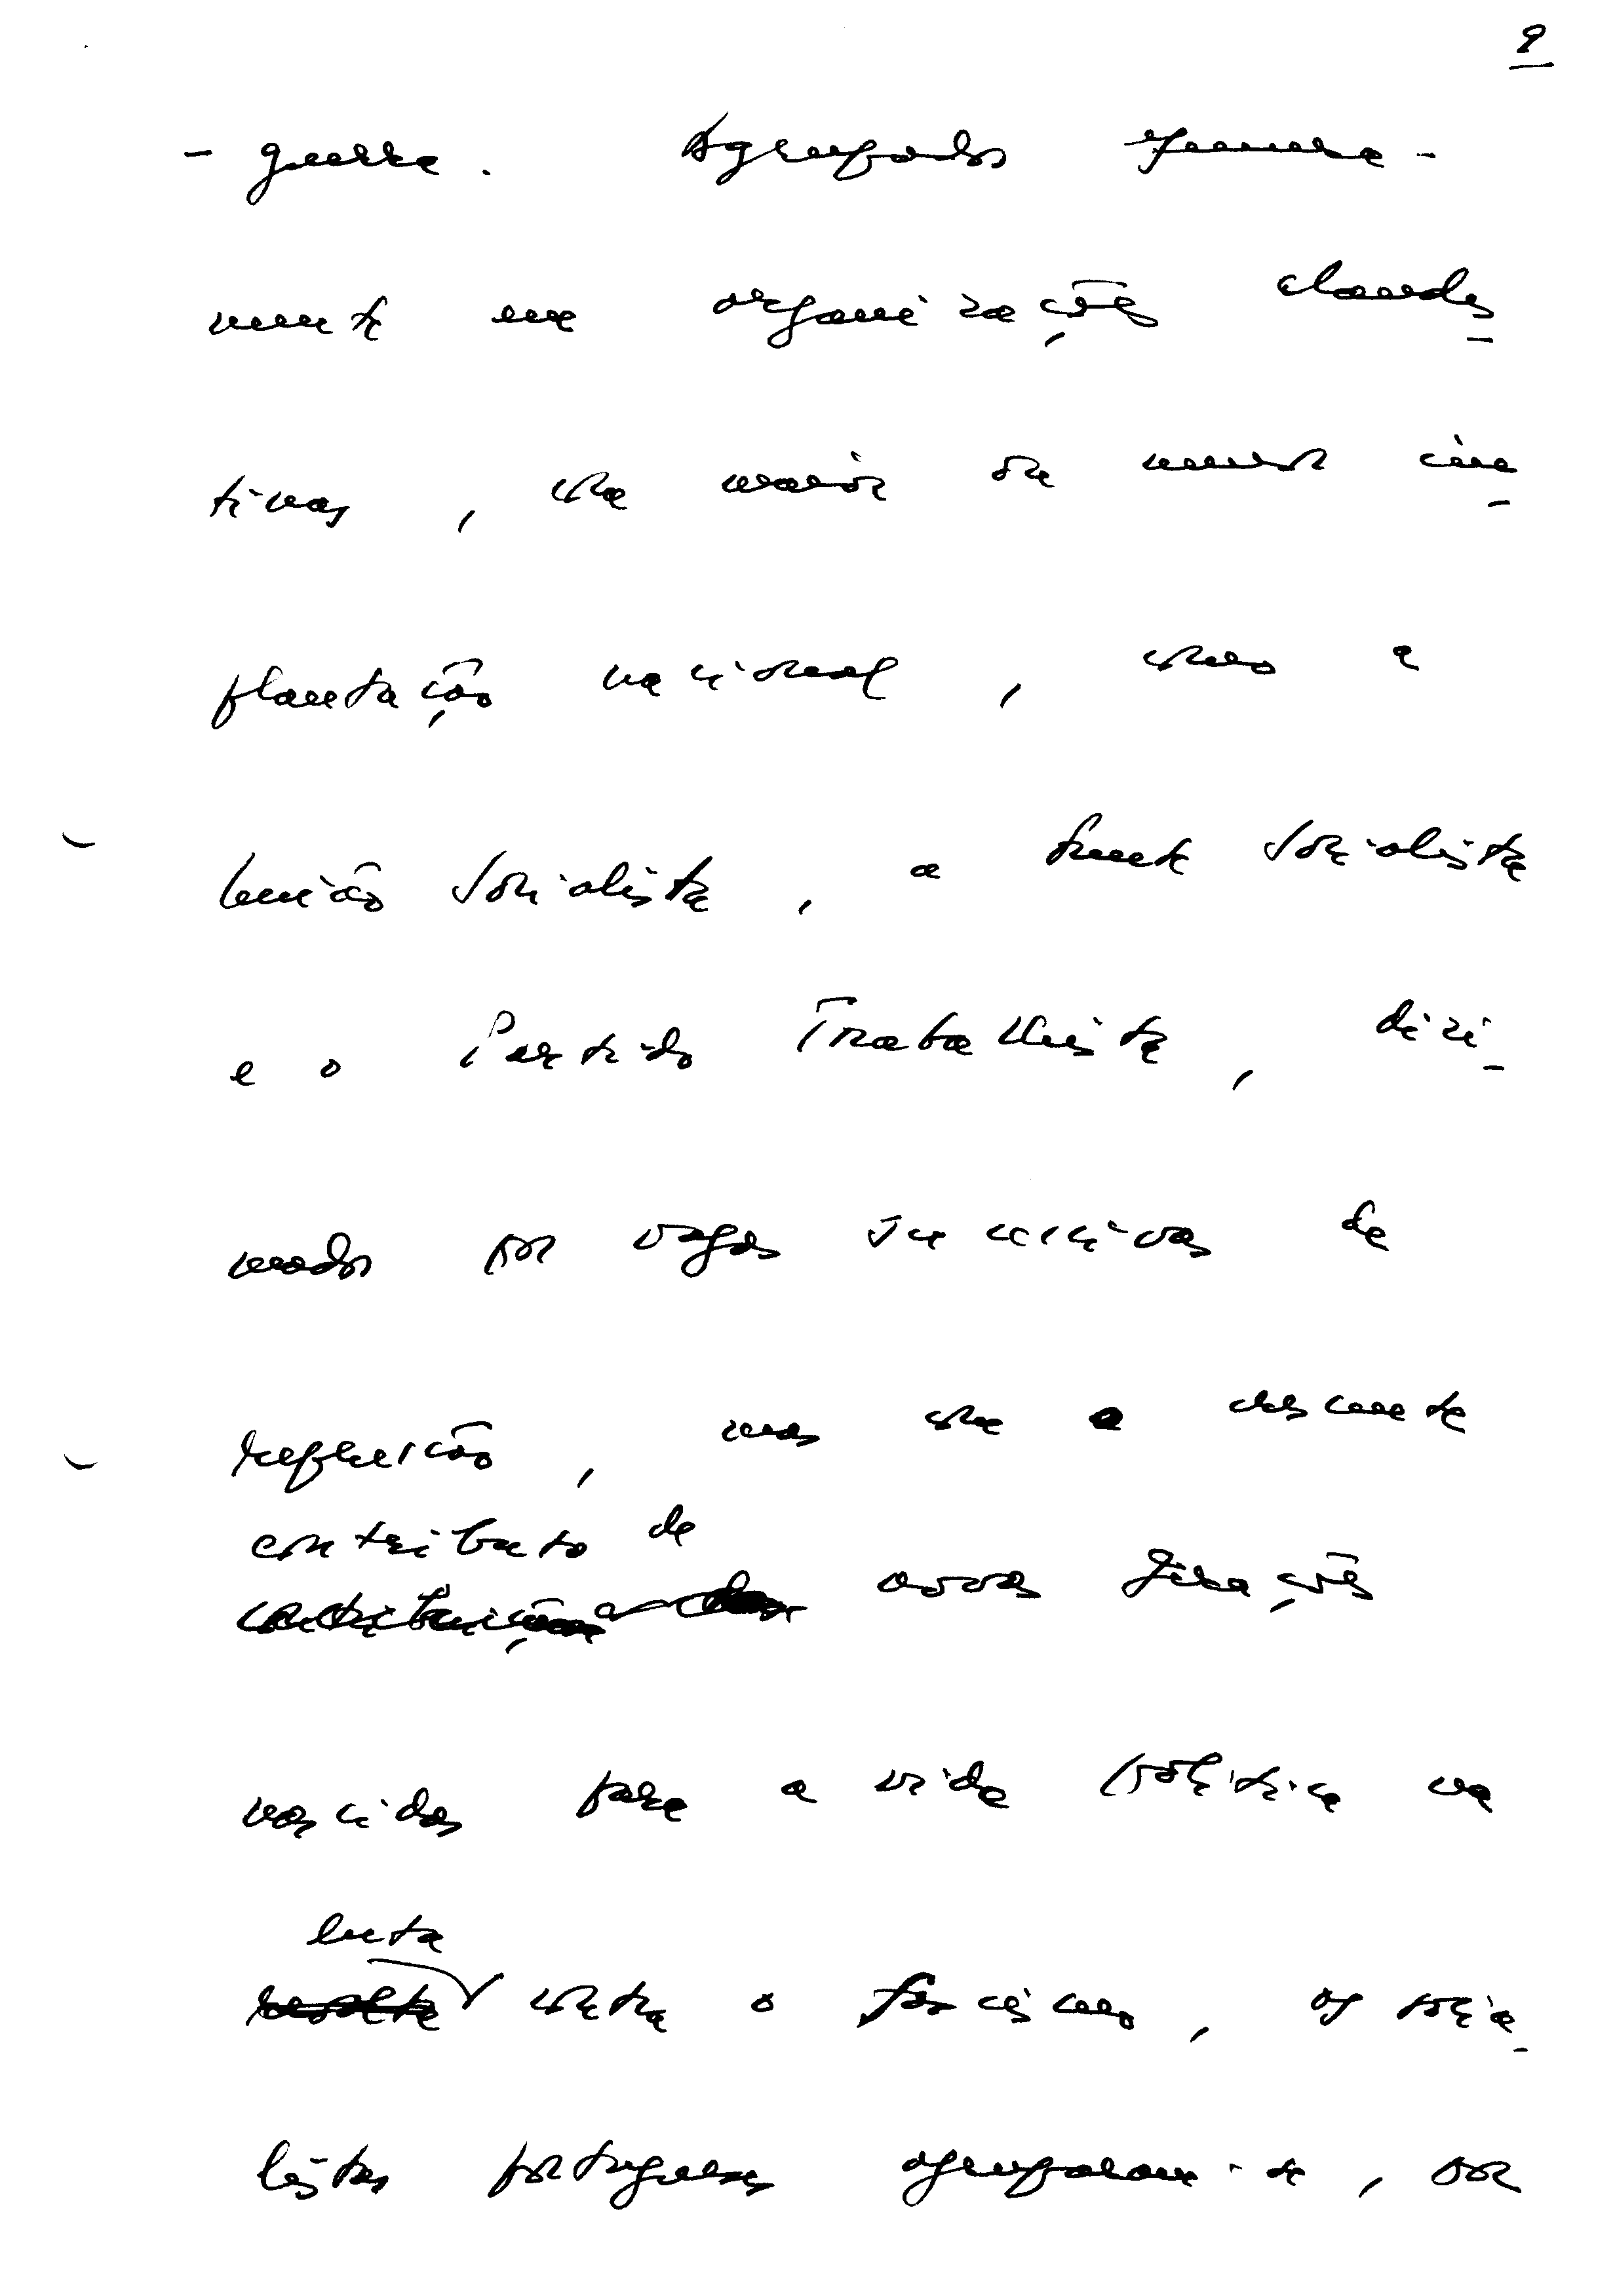 9
- guerra. Agrupados primeira-
mente em organizações clandes-
tinas, com maior ou menor im-
plantação nacional, como a
União Socialista, a Frente Socialista
e o Partido Trabalhista, dizi-
mados por vagas sucessivas de
repressão, mas com o crescente
contributo de
novas gerações
nascidas para a vida política na
luta
revolta contra o fascismo, os socia-
listas portugueses agruparam-se, por